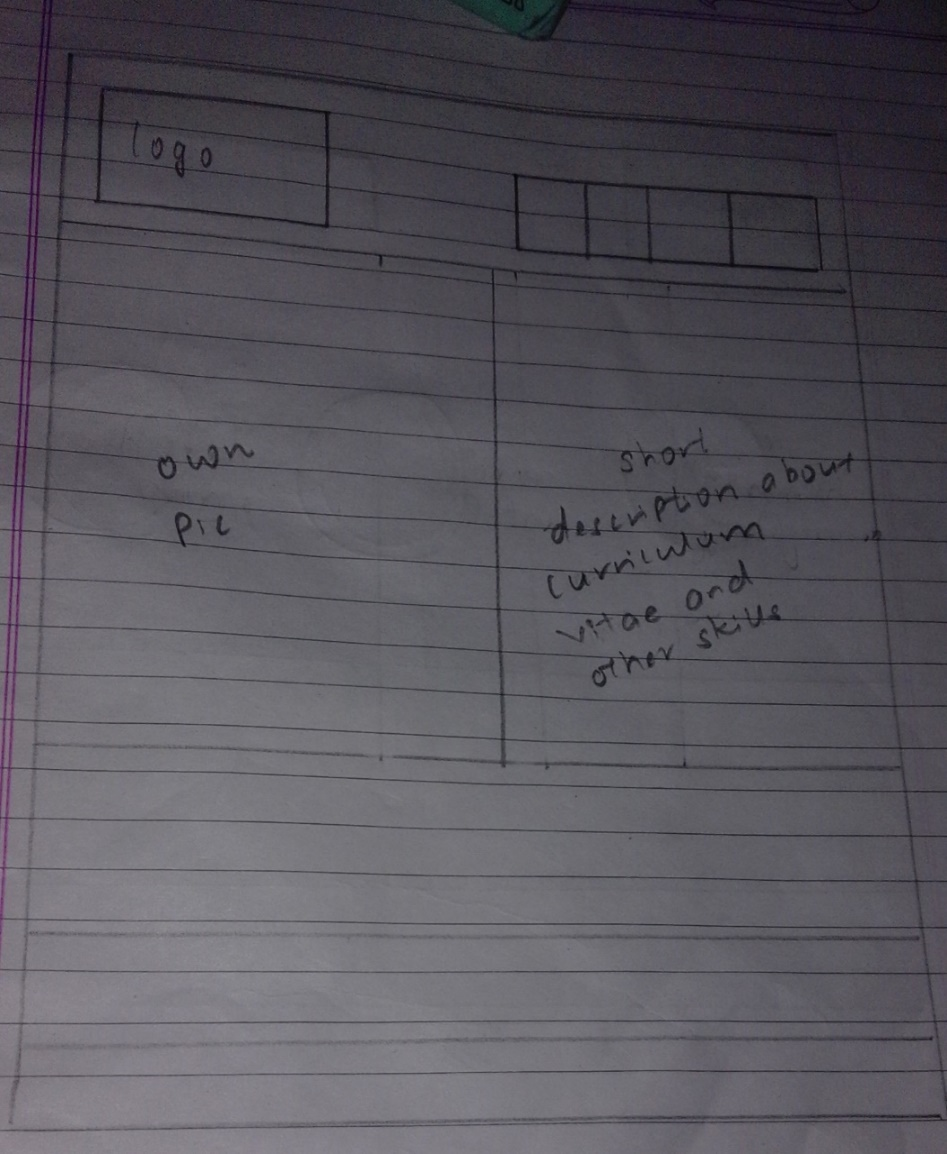 logo
own
pic
short
description about
curriculum
vitae and
other skills